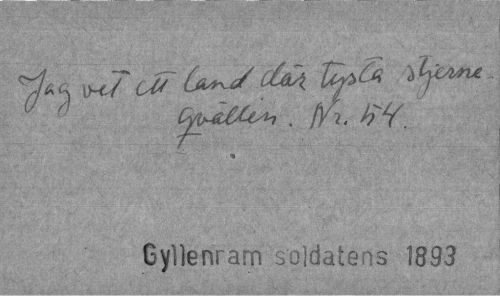 Jag vet ett land där tysta stjerne-
qvällen. Nr. 54.
Gyllenram soldatens 1893